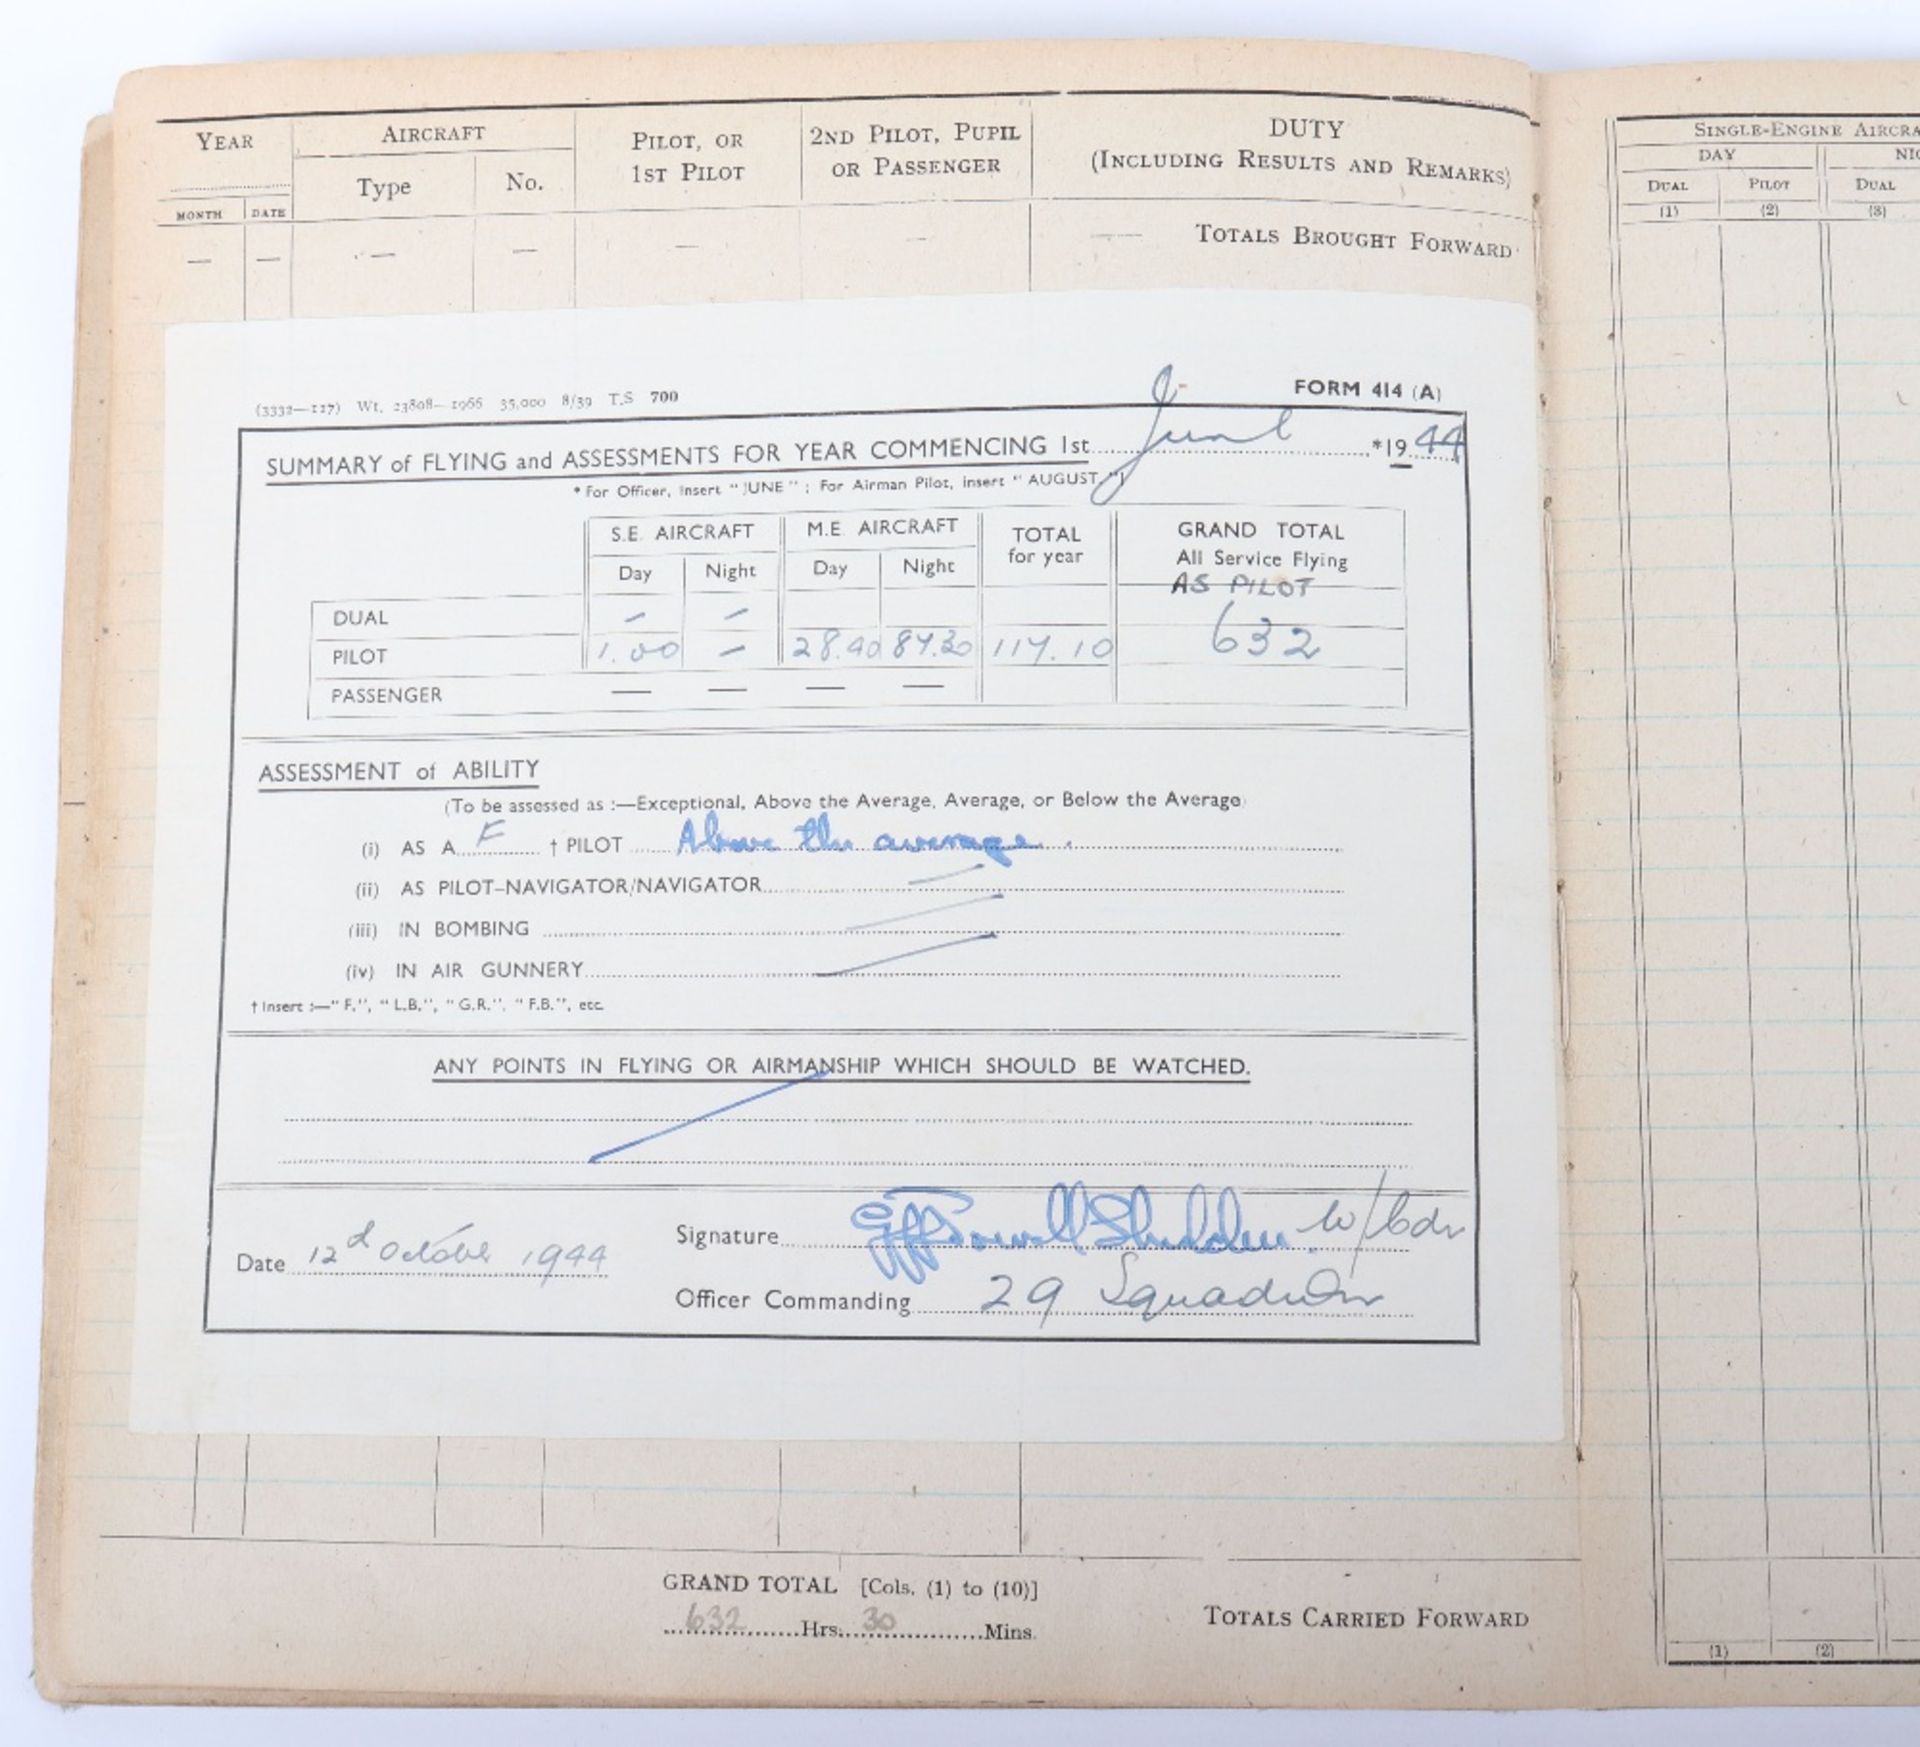 YEAR AIRCRAFT PILOT, OR 1ST PILOT 2ND PILOT, PUPIL OR PASSENGER DUTY (INCLUDING RESULTS AND REMARKS)
MONTH DATE Type No.
— — — — — — — TOTALS BROUGHT FORWARD
SINGLE-ENGINE AIRCRA
DAY NIG
DUAL PILOT DUAL
(1) (2) (3)
(3332—127) Wt. 23808—1966 35,000 8/39 T.S 700 FORM 414 (A)
SUMMARY of FLYING and ASSESSMENTS FOR YEAR COMMENCING 1st June *19 44
* For Officer, insert "JUNE"; For Airman Pilot, insert "AUGUST."
S.E. AIRCRAFT M.E. AIRCRAFT TOTAL for year GRAND TOTAL All Service Flying
Day Night Day Night AS PILOT
DUAL — —
PILOT 1.00 — 28.40 87.30 117.10 632
PASSENGER — — — —
ASSESSMENT of ABILITY
(To be assessed as :—Exceptional, Above the Average, Average, or Below the Average)
(i) AS A F † PILOT Above the average.
(ii) AS PILOT-NAVIGATOR/NAVIGATOR
(iii) IN BOMBING
(iv) IN AIR GUNNERY
† Insert :—"F.", "L.B.", "G.R.", "F.B.", etc.
ANY POINTS IN FLYING OR AIRMANSHIP WHICH SHOULD BE WATCHED.
Signature Powell Shedden. W/Cdr
Date 12d October 1944
Officer Commanding 29 Squadron
GRAND TOTAL [Cols. (1) to (10)]
632 Hrs. 30 Mins.
TOTALS CARRIED FORWARD
(1) (2)